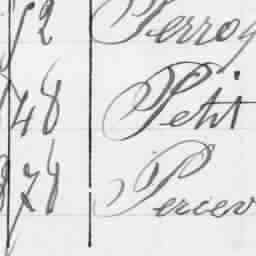 52 Perrog
748 Petit
878 Percev